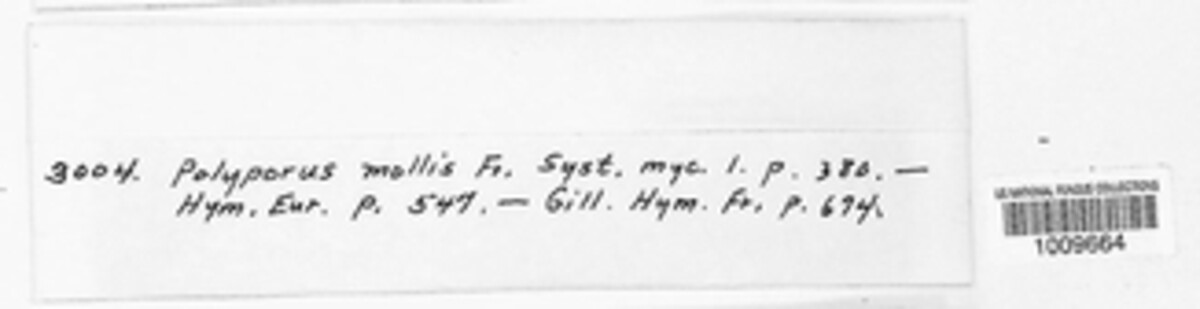 3004. Polyporus mollis Fr. Syst. myc. 1. p. 380. —
Hym. Eur. p. 547. — Gill. Hym. Fr. p. 674.
US NATIONAL FUNGUS COLLECTIONS
1009664